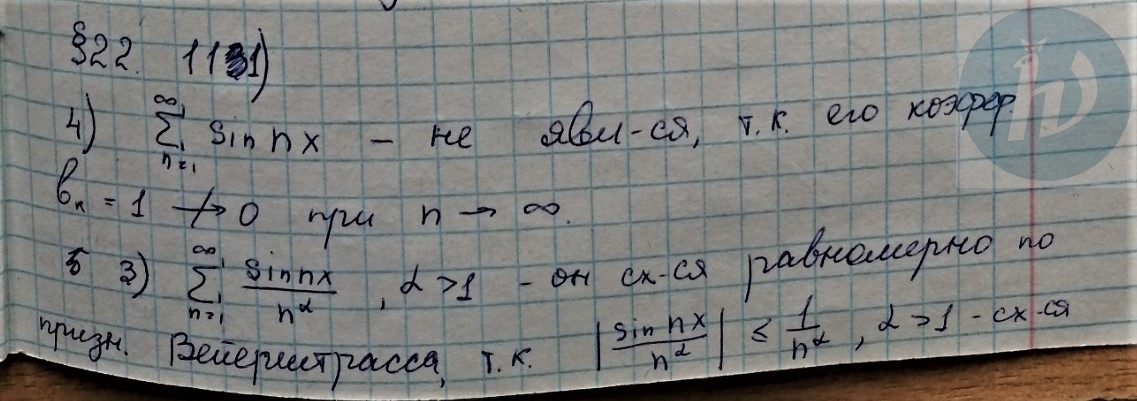 §22. 1131)
4) ∞ ∑ n=1 sin nx – не явл-ся, т.к. его коэфф.
bₙ = 1 ↛ 0 при n → ∞.
3) ∞ ∑ n=1 sin nx / n^α , α > 1 – он сх-ся равномерно по
призн. Вейерштрасса, т.к. |sin nx / n^α| ≤ 1 / n^α , α > 1 - сх-ся